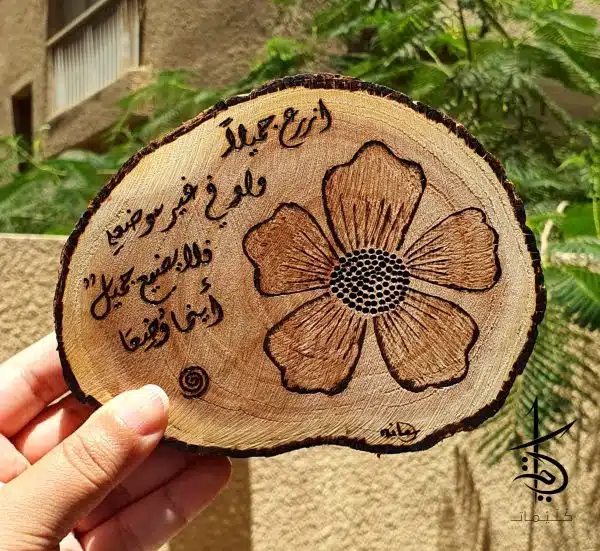 ازرع جميلاً
ولو في غير موضعهِ
فلا يضيع جميل
أينما وُضِعَا
كلّيمات